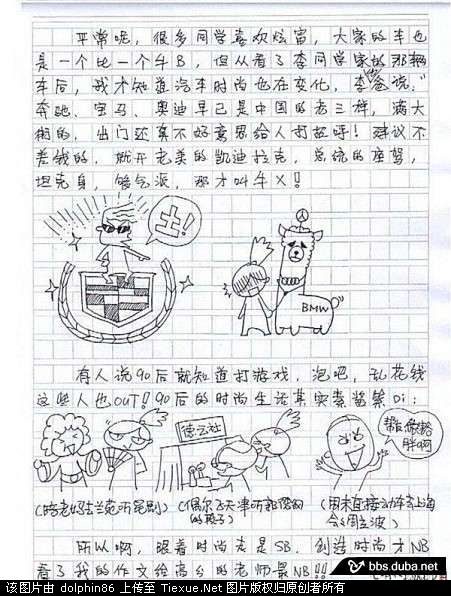 平常呢，很多同学喜欢炫富，大家的车也
是一个比一个牛B，但从看了李同学家的那辆
车后，我才知道汽车时尚也在变化，李爸说：
奔驰、宝马、奥迪早已是中国的老三样，满大
街的，出门还真不好意思给人打招呼！建议不
差钱的，就开老美的凯迪拉克，总统的座驾，
坦克身，够气派，那才叫牛X！
土！
BMW
有人说90后就知道打游戏，泡吧，乱花钱
这些人也OUT！90后的时尚生活其实素酱紫Di：
德云社
帮我
胖啊
(陪老妈去
(偶尔飞天津听郭德纲
的段子)
(周末直接动车去上海
会周立波)
所以啊，跟着时尚走是SB，创造时尚才NB
看了我的作文给高分的老师最NB!!
bbs.duba.net
该图片由 dolphin86 上传至 Tiexue.Net 图片版权归原创者所有